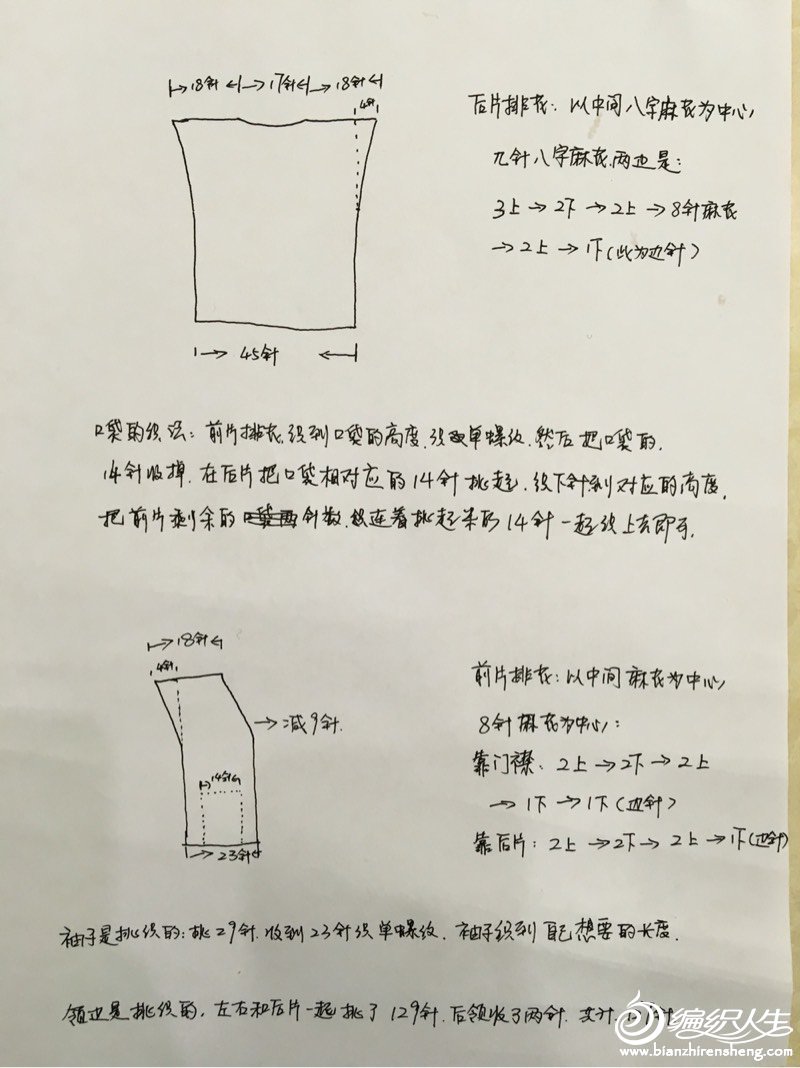 18针 17针 18针
4针
后片排花：以中间八字麻花为中心，
九针八字麻花，两边是：
3上→2下→2上→8针麻花
→2上→1下(此为边针)
45针
口袋的织法：前片排花，织到口袋的高度，织单螺纹，然后把口袋的，
14针收掉，在后片把口袋相对应的14针挑起，织下针到对应的高度，
把前片剩余的针数，连着挑起来的14针一起织上去即可。
18针
4针
减9针.
14针
23针
前片排花：以中间麻花为中心，
8针麻花为中心：
靠门襟：2上→2下→2上
→1下→1下(边针)
靠后片：2上→2下→2上→1下(边针)
袖子是挑织的：挑29针，收到23针织单螺纹，袖子织到自己想要的长度.
领边是挑织的，左右和后片一起挑了129针，后领收了两针，共计
编织人生
www.bianzhirensheng.com